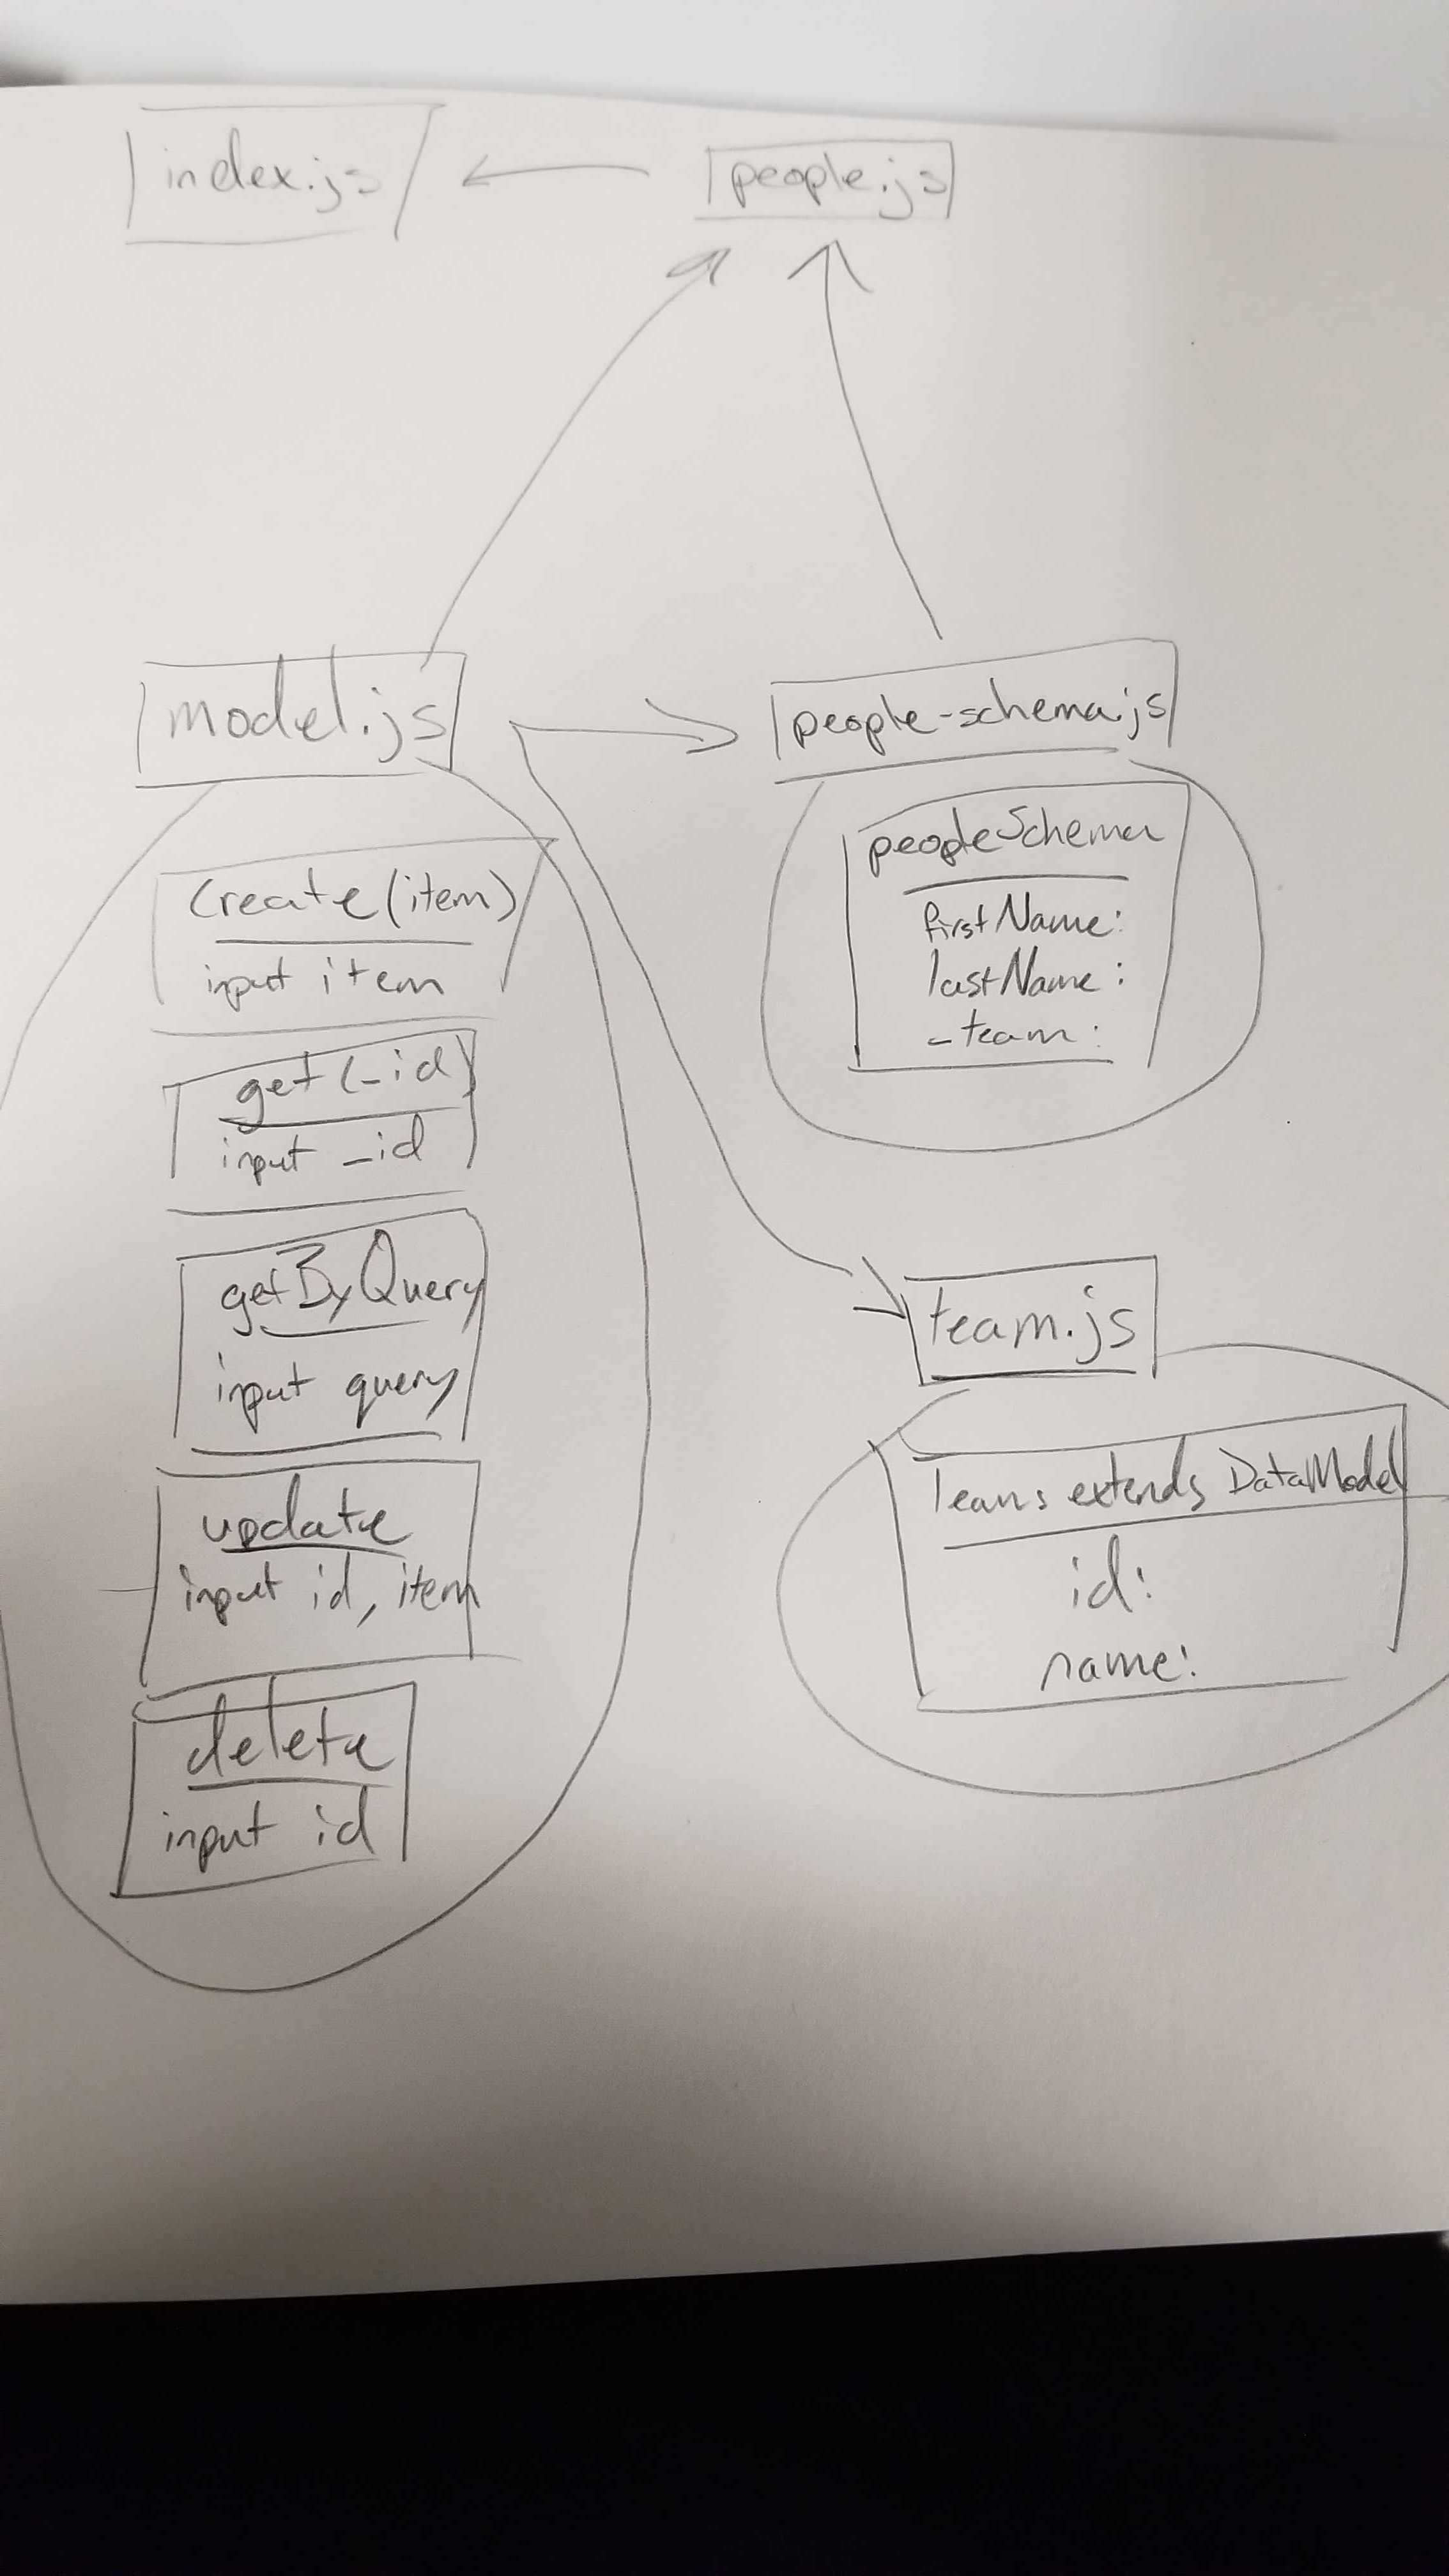 index.js
people.js
model.js
create(item)
input item
get(_id)
input _id
getByQuery
input query
update
input id, item
delete
input id
people-schema.js
peopleSchema
firstName:
lastName:
_team:
team.js
Teams extends DataModel
id:
name: